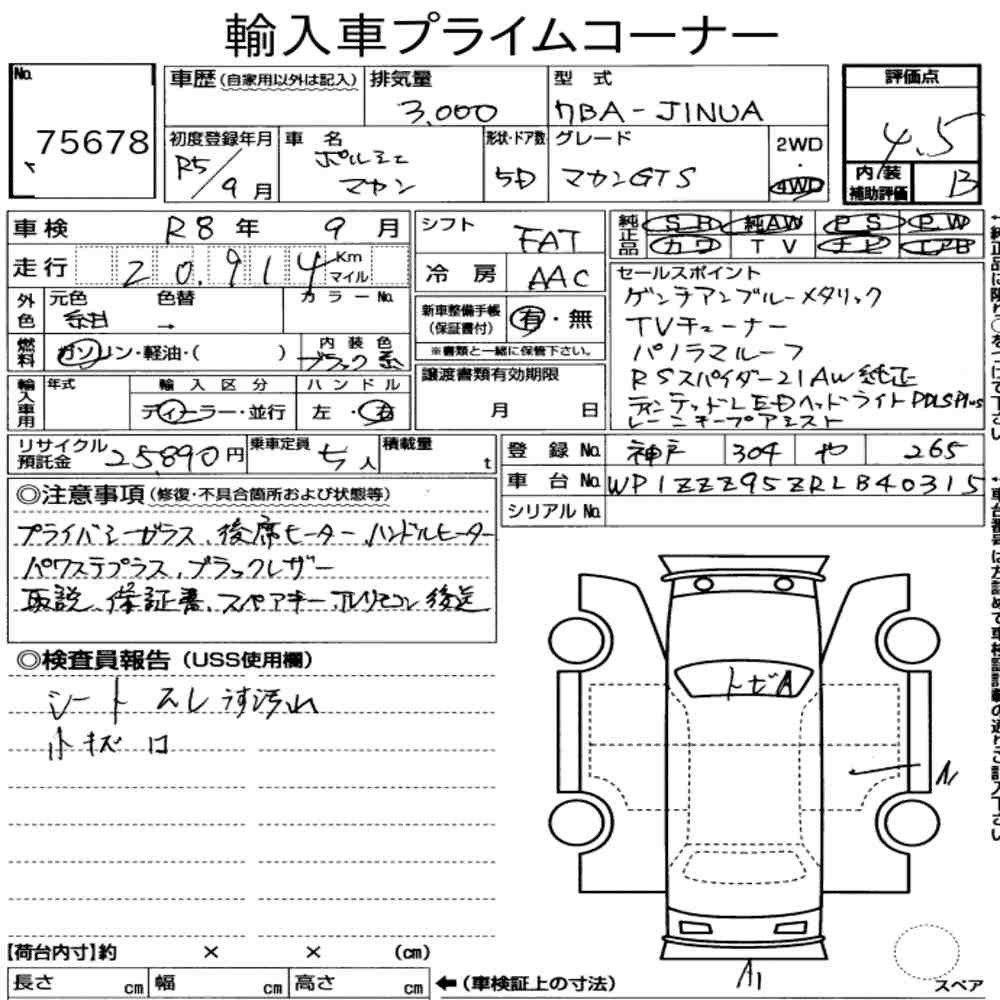 輸入車プライムコーナー
No. 75678
車歴(自家用以外は記入) 排気量 3,000 型式 7BA-J1NUA 評価点 4.5
初度登録年月 R5/9月 車名 ポルシェ マカン 形状・ドア数 5D グレード マカンGTS 2WD・4WD 内装補助評価 B
車検 R8年 9月 シフト FAT 純正品 SR 純AW PS PW
カワ TV ナビ エアB
走行 20,914 Km マイル 冷房 AAC
外色 元色 紺 色替 → カラーNo.
新車整備手帳(保証書付) 有・無
※書類と一緒に保管下さい。
燃料 ガソリン・軽油・( ) 内装色 ブラック系
輸入車用 年式 輸入区分 ディーラー・並行 ハンドル 左・右
譲渡書類有効期限 月 日
セールスポイント
ゲンチアンブルーメタリック
TVチューナー
パノラマルーフ
RSスパイダー21AW純正
ティンテッドLEDヘッドライトPDLSPlus
レーンキープアシスト
リサイクル預託金 25,890円 乗車定員 五人 積載量 t
登録No. 神戸 304 や 265
車台No. WP1ZZZ95ZRLB40315
シリアルNo.
◎注意事項(修復・不具合箇所および状態等)
プライバシーガラス、後席ヒーター、ハンドルヒーター
パワステプラス、ブラックレザー
取説、保証書、スペアキー、ルリモコン後送
◎検査員報告(USS使用欄)
シート スレ うす汚れ
小キズ 口
トビA
A1
【荷台内寸】約 × × (cm)
長さ cm 幅 cm 高さ cm ←(車検証上の寸法)
スペア